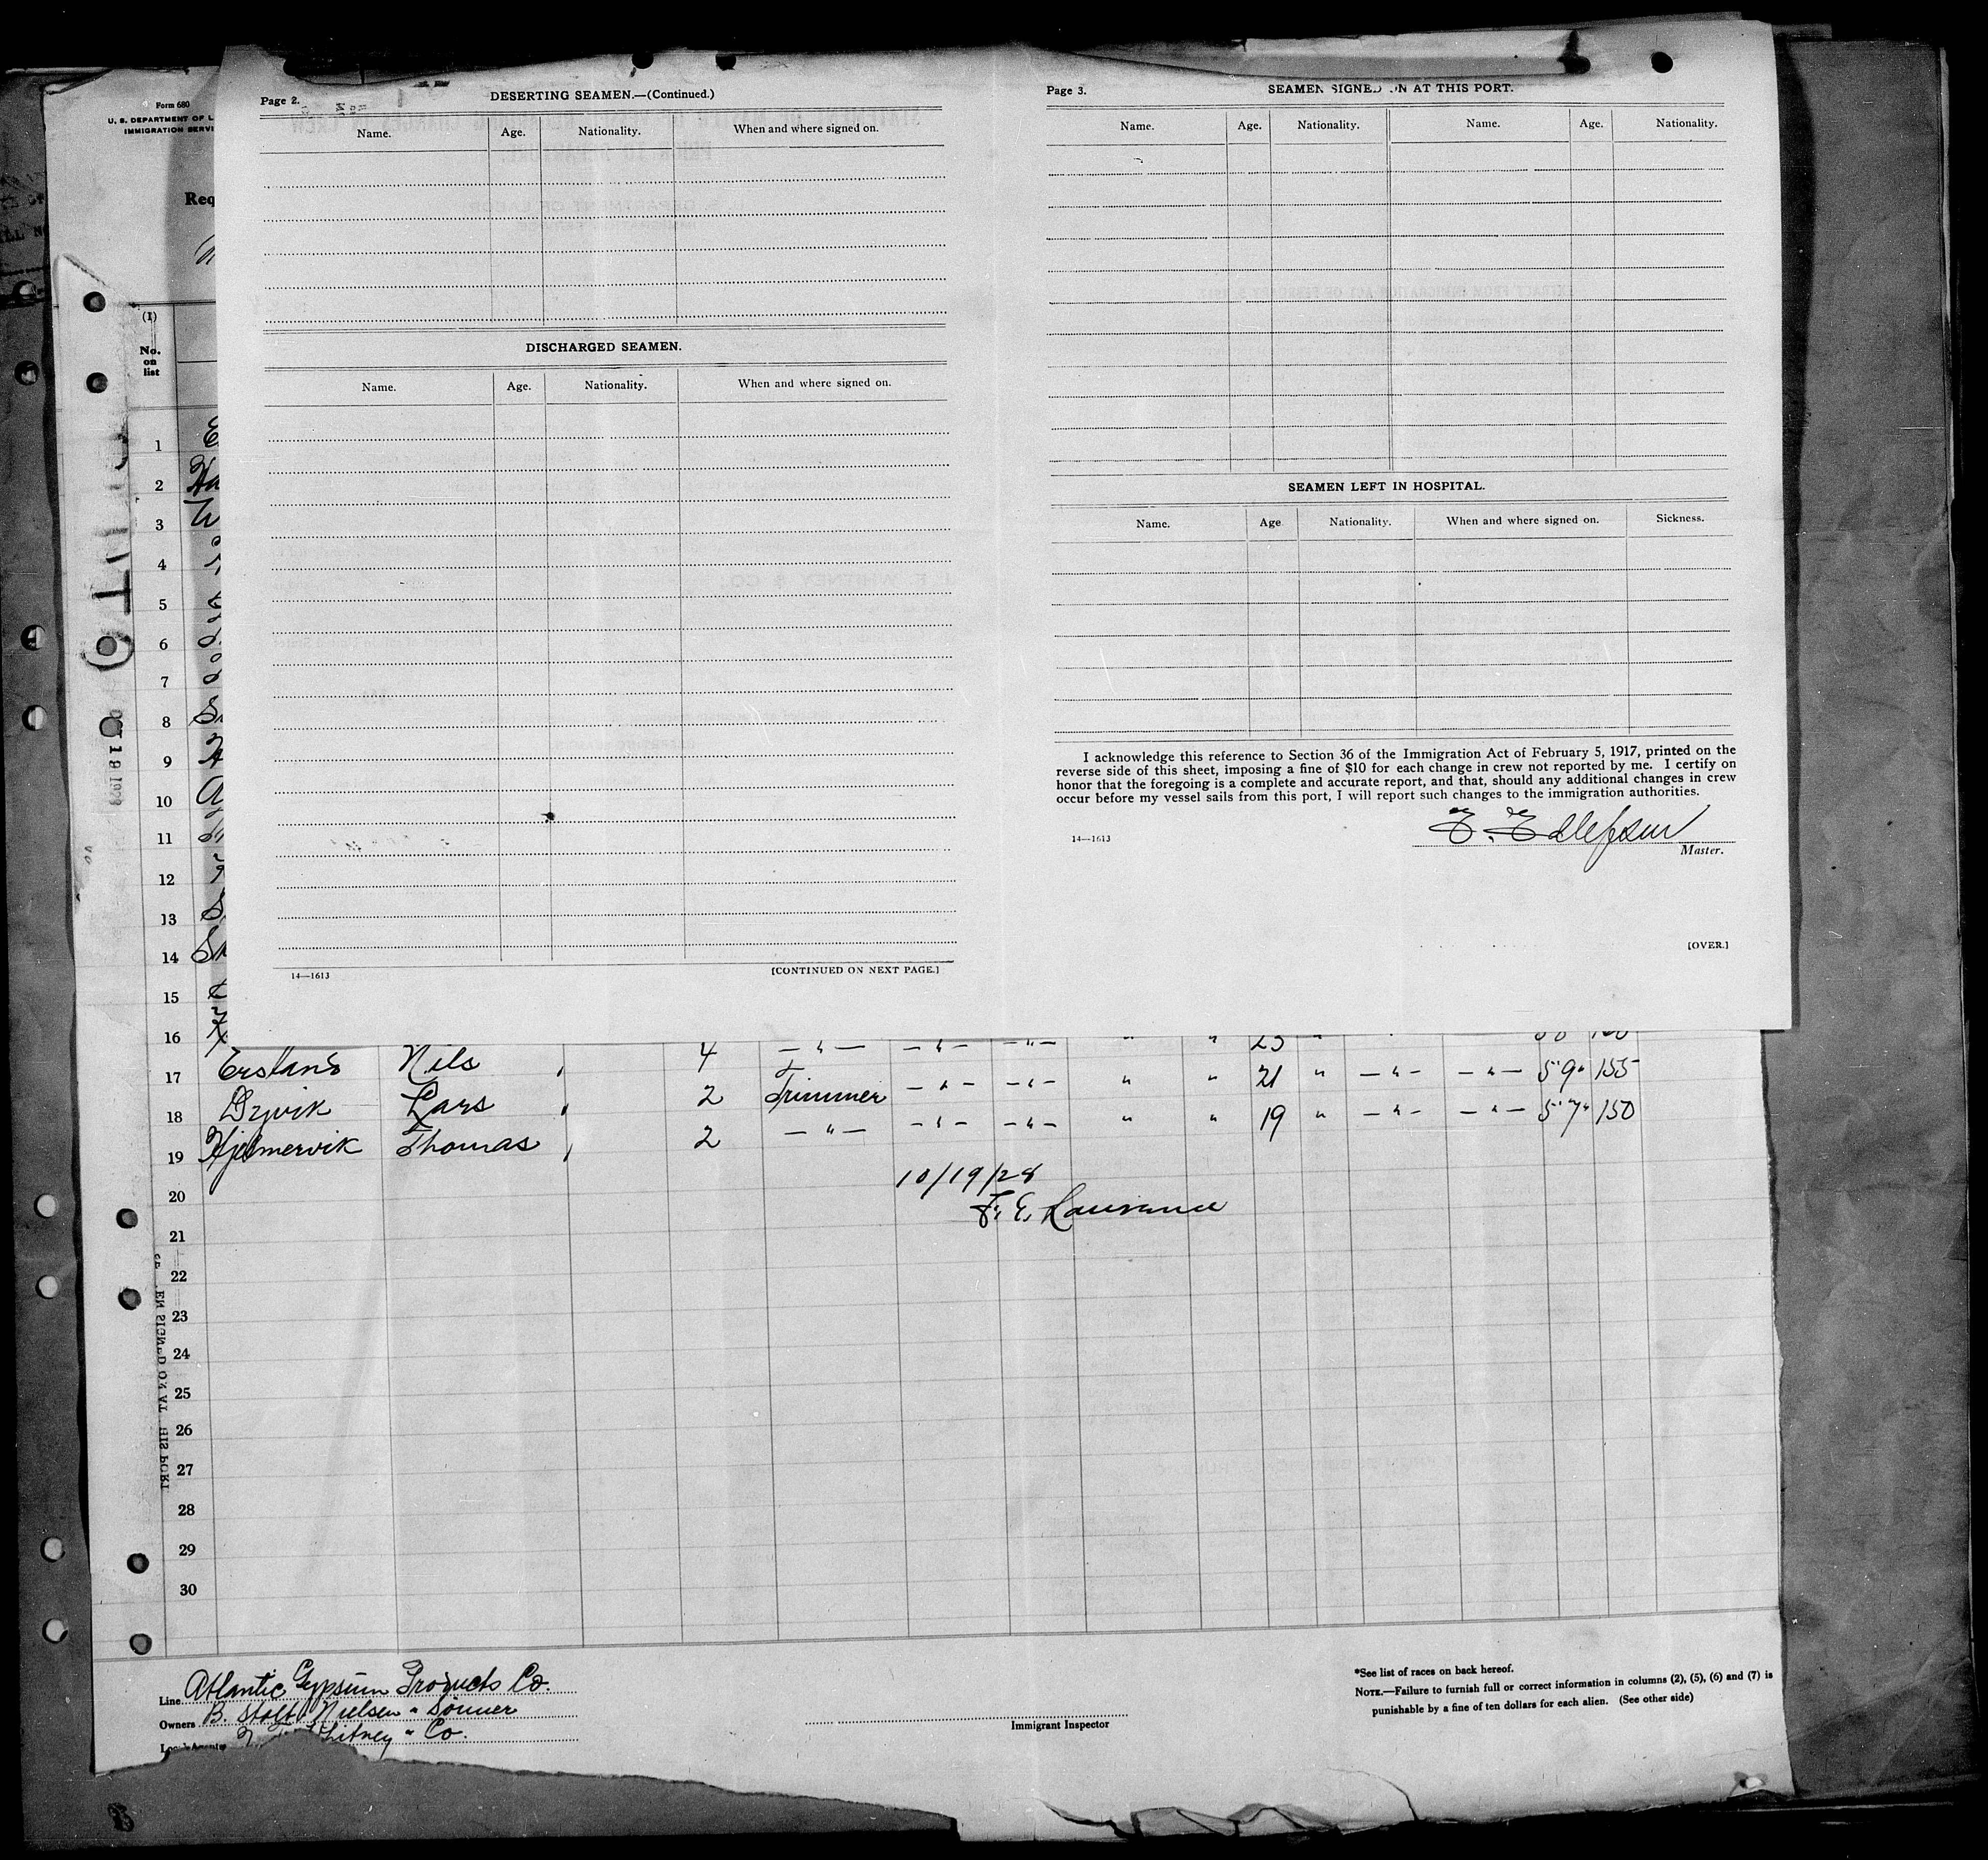 Form 680
U. S. DEPARTMENT OF L
IMMIGRATION SERVI
Req
(1)
No.
on
list
Page 2.
DESERTING SEAMEN.—(Continued.)
Name. Age. Nationality. When and where signed on.
DISCHARGED SEAMEN.
Name. Age. Nationality. When and where signed on.
14—1613
[CONTINUED ON NEXT PAGE.]
Page 3.
SEAMEN SIGNED ON AT THIS PORT.
Name. Age. Nationality. Name. Age. Nationality.
SEAMEN LEFT IN HOSPITAL.
Name. Age Nationality. When and where signed on. Sickness.
I acknowledge this reference to Section 36 of the Immigration Act of February 5, 1917, printed on the
reverse side of this sheet, imposing a fine of $10 for each change in crew not reported by me. I certify on
honor that the foregoing is a complete and accurate report, and that, should any additional changes in crew
occur before my vessel sails from this port, I will report such changes to the immigration authorities.
14—1613
Master.
[OVER.]
1
2 Ha
3
4
5
6
7
8
9
10
11
12
13
14
15
16
17 Ersland Nils 4 — " — — " — — " — " " 23 "
18 Lars 2 Trimmer — " — — " — " " 21 " — " — — " — 5'9" 155
19 Hjelmervik Thomas 2 — " — — " — — " — " " 19 " — " — — " — 5'7" 150
20 10/19/28
21 F. E. Lawrence
22
23
24
25
26
27
28
29
30
Line Atlantic Gypsum Products Co.
Owners B. Stolt Nielsen " Sønner
Local Agents Whitney " Co.
Immigrant Inspector
*See list of races on back hereof.
NOTE.—Failure to furnish full or correct information in columns (2), (5), (6) and (7) is
punishable by a fine of ten dollars for each alien. (See other side)